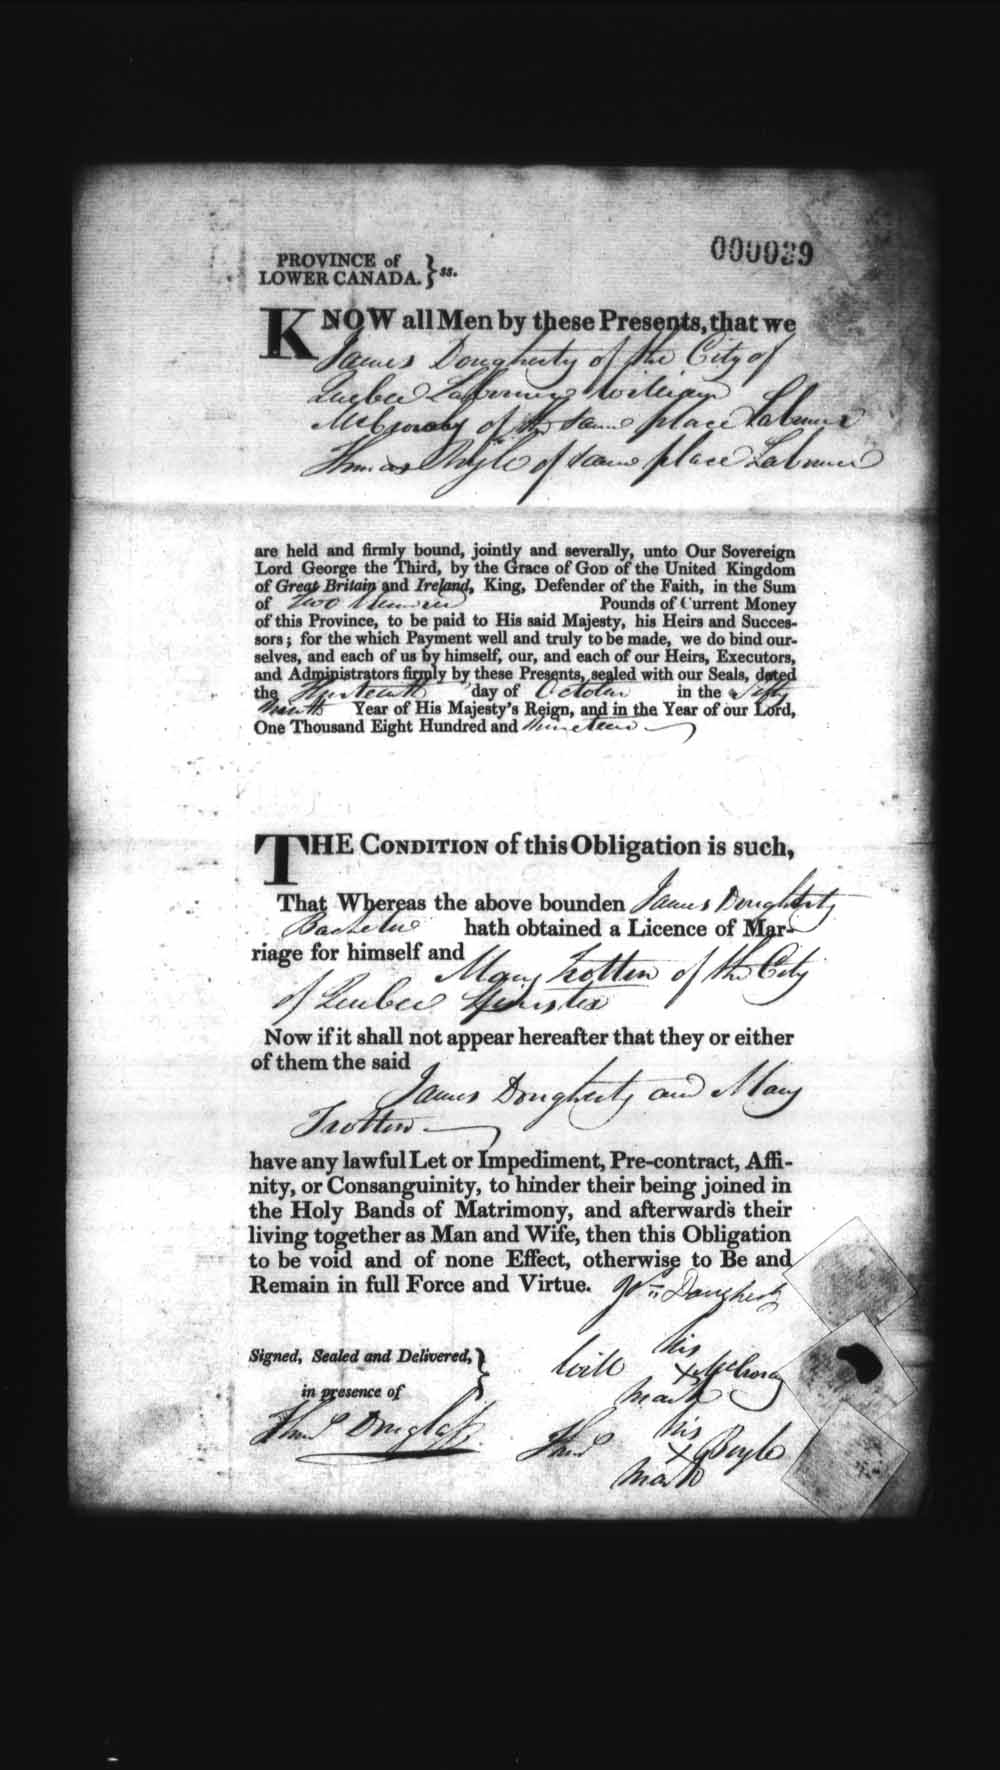 000039
PROVINCE of
LOWER CANADA. } ss.
KNOW all Men by these Presents, that we
James Dougherty of the City of
Quebec Labourer William
McCrory of the same place Labourer
Thomas Boyle of same place Labourer
are held and firmly bound, jointly and severally, unto Our Sovereign
Lord George the Third, by the Grace of GOD of the United Kingdom
of Great Britain and Ireland, King, Defender of the Faith, in the Sum
of Two Hundred Pounds of Current Money
of this Province, to be paid to His said Majesty, his Heirs and Succes-
sors; for the which Payment well and truly to be made, we do bind our-
selves, and each of us by himself, our, and each of our Heirs, Executors,
and Administrators firmly by these Presents, sealed with our Seals, dated
the day of October in the Fifty
Ninth Year of His Majesty's Reign, and in the Year of our Lord,
One Thousand Eight Hundred and Nineteen
THE CONDITION of this Obligation is such,
That Whereas the above bounden James Dougherty
Bachelor hath obtained a Licence of Mar-
riage for himself and
Mary Trotten of the City
of Quebec Spinster
Now if it shall not appear hereafter that they or either
of them the said
James Dougherty and Mary
Trotten
have any lawful Let or Impediment, Pre-contract, Affi-
nity, or Consanguinity, to hinder their being joined in
the Holy Bands of Matrimony, and afterwards their
living together as Man and Wife, then this Obligation
to be void and of none Effect, otherwise to Be and
Remain in full Force and Virtue.
Dougherty
Signed, Sealed and Delivered, }
in presence of
Will his x mark McCrory
Thos Douglass
Thos his x mark Boyle